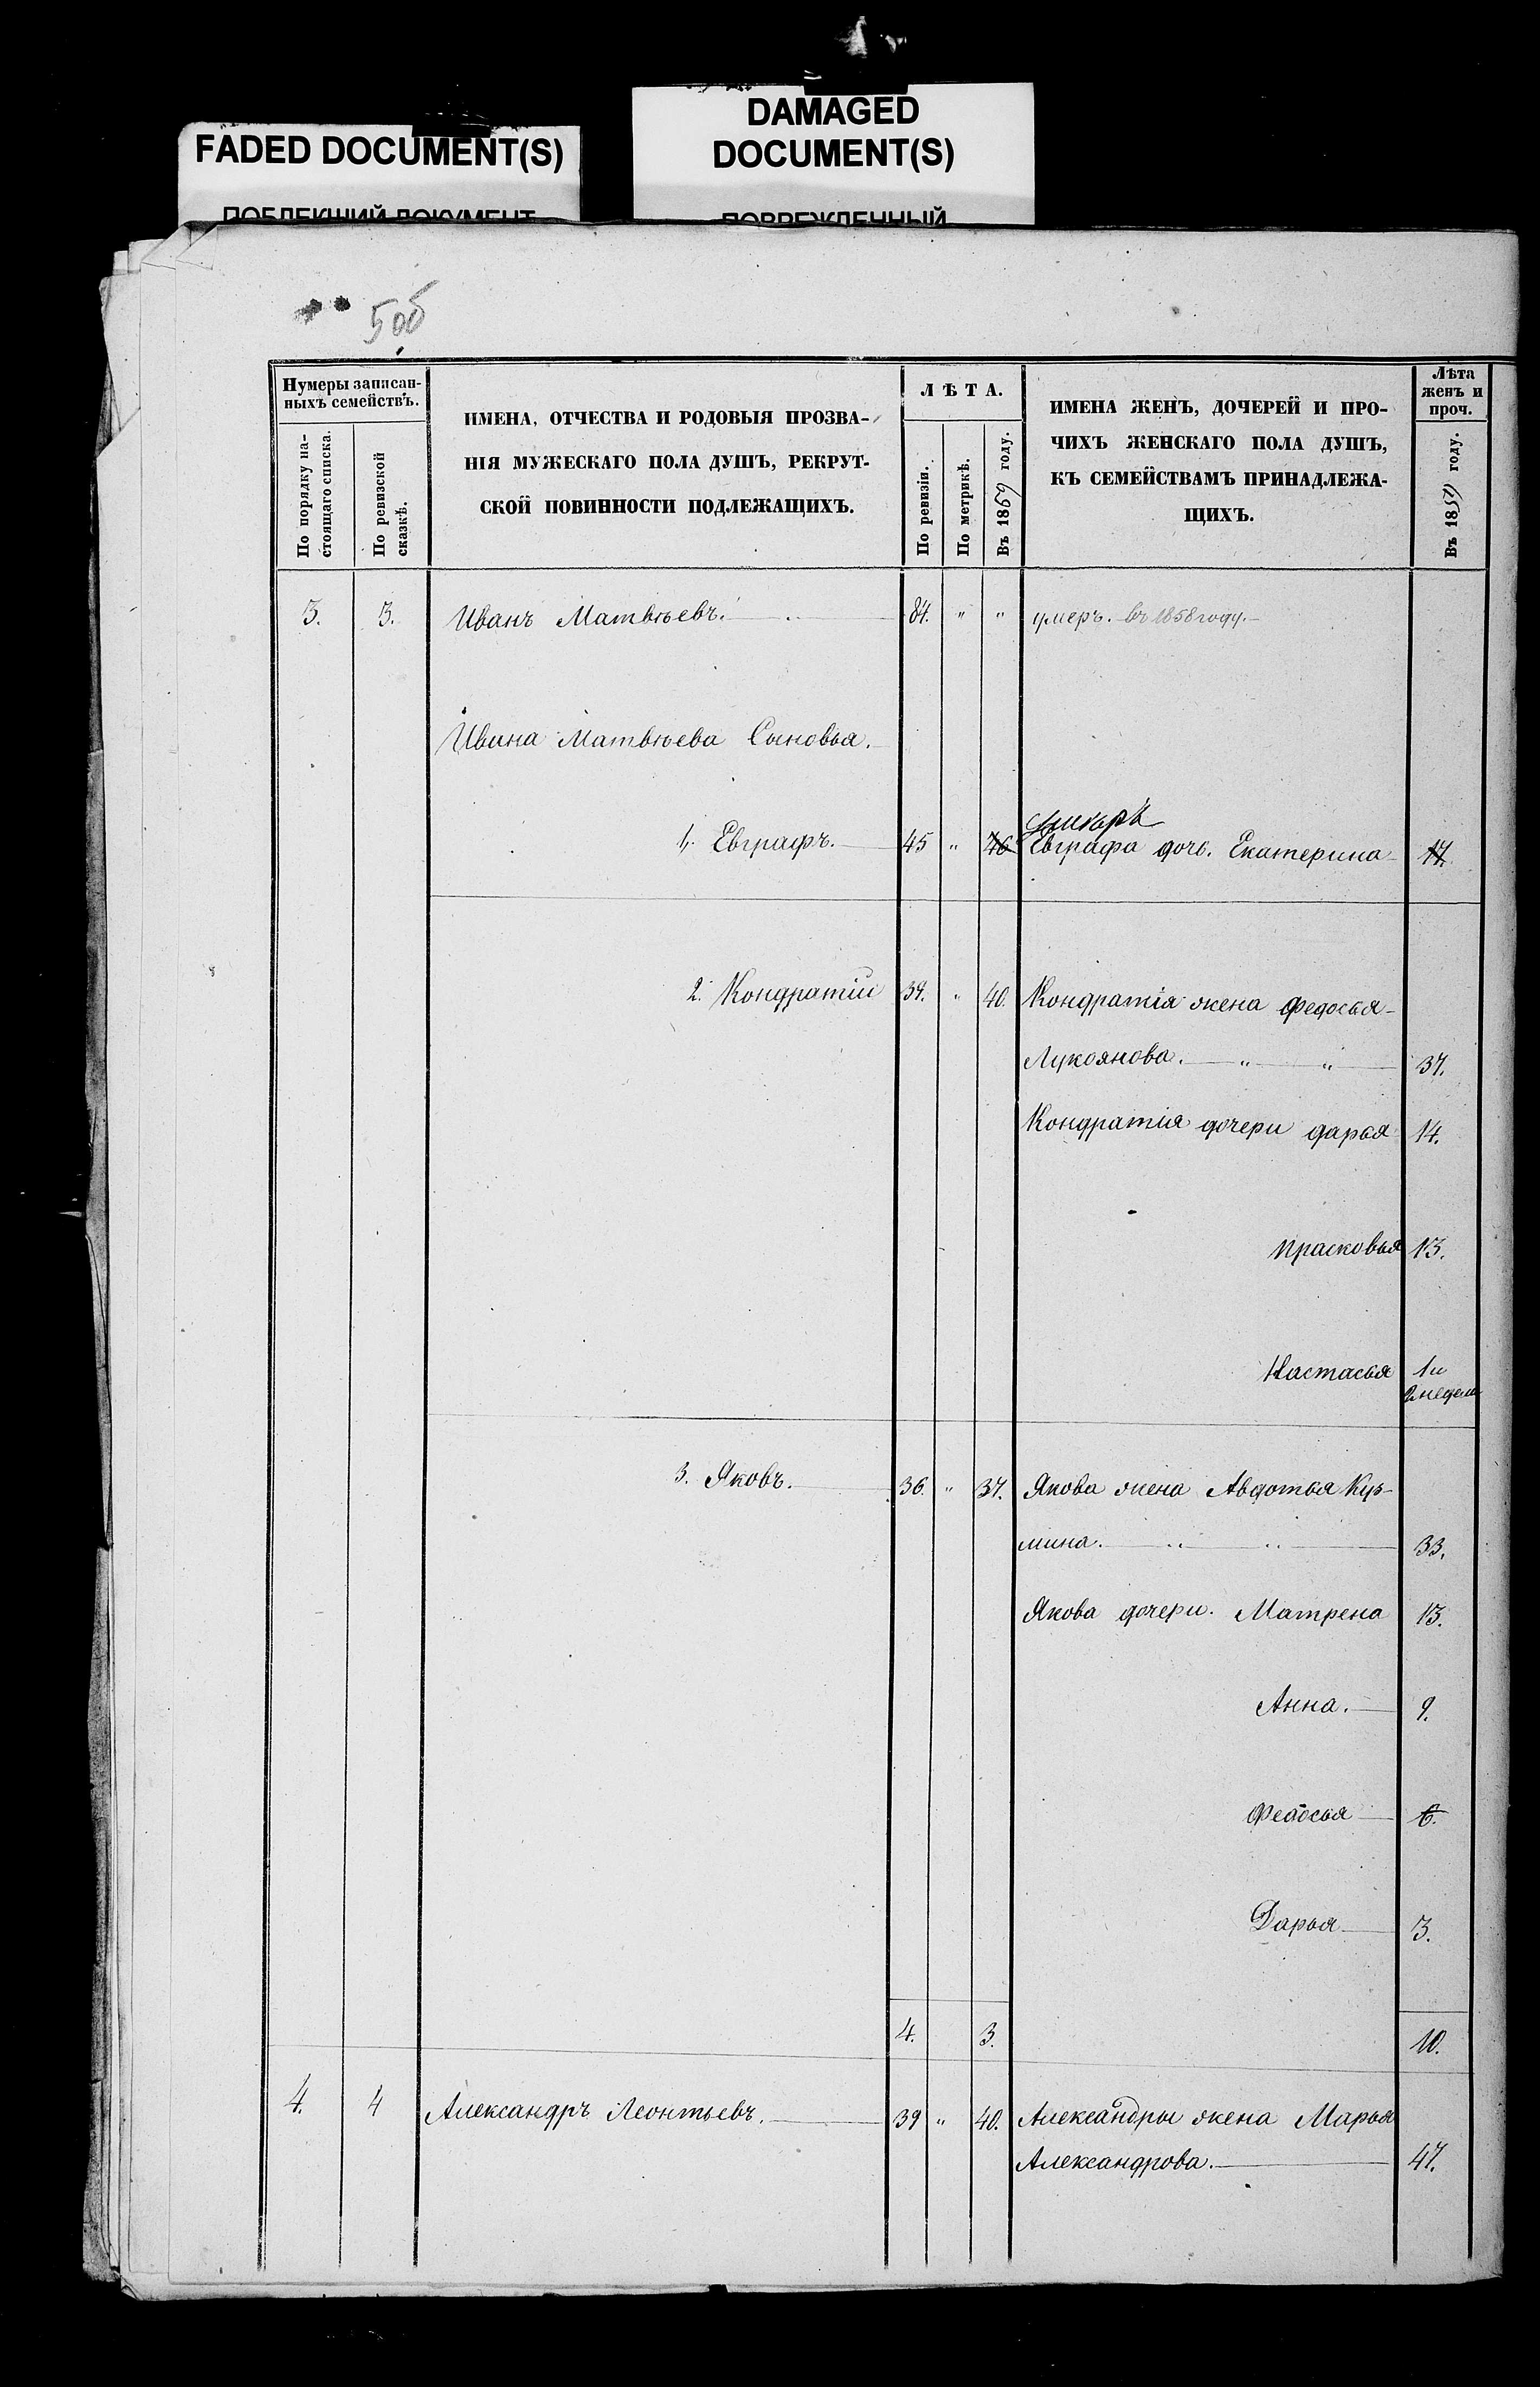 FADED DOCUMENT(S)
ПОБЛЕКШИЙ ДОКУМЕНТ
DAMAGED
DOCUMENT(S)
ПОВРЕЖДЕННЫЙ
Нумеры записан-
ныхъ семействъ.
По порядку на-
стоящаго списка.
По ревизской
сказкѣ.
ИМЕНА, ОТЧЕСТВА И РОДОВЫЯ ПРОЗВА-
НІЯ МУЖЕСКАГО ПОЛА ДУШЪ, РЕКРУТ-
СКОЙ ПОВИННОСТИ ПОДЛЕЖАЩИХЪ.
ЛѢТА.
По ревизіи.
По метрикѣ.
Въ 1859 году.
ИМЕНА ЖЕНЪ, ДОЧЕРЕЙ И ПРО-
ЧИХЪ ЖЕНСКАГО ПОЛА ДУШЪ,
КЪ СЕМЕЙСТВАМЪ ПРИНАДЛЕЖА-
ЩИХЪ.
Лѣта
женъ и
проч.
Въ 1859 году.
3. 3. Иванъ Матвѣевъ. 84. " " умеръ. въ 1858 году.
Ивана Матвѣева Сыновья.
1. Евграфъ. 45 " 46 Евграфа дочь. Екатерина 17.
2. Кондратій 39. " 40. Кондратія жена Федосья
Лукоянова. " " 37.
Кондратія дочери Дарья 14.
Прасковья 13.
Настасья 1 и
2 недели
3. Яковъ. 36. " 37. Якова жена Авдотья Куз-
мина. " " 33.
Якова дочери. Матрена 13.
Анна. 9.
Федосья 6.
Дарья 3.
4. 3. 10.
4. 4 Александръ Леонтьевъ. 39 " 40. Александры жена Марья
Александрова. 47.